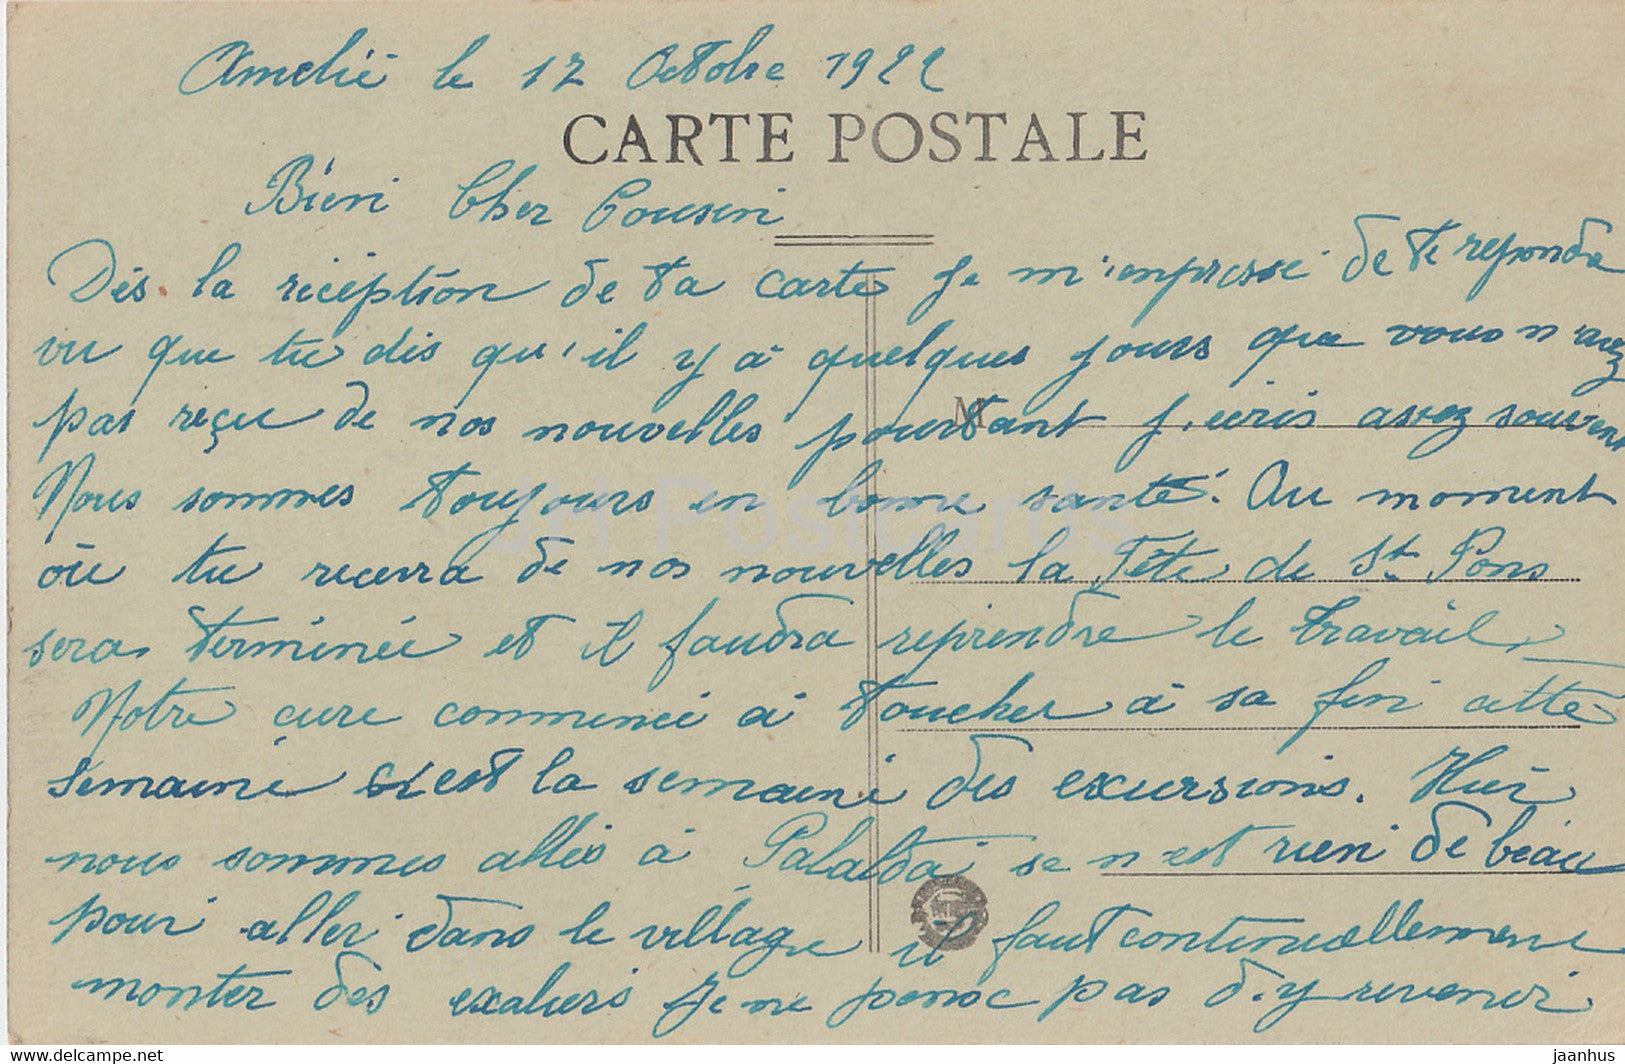 Amelie le 17 Octobre 1922
CARTE POSTALE
Bien Cher Cousin
Dès la réception de ta carte Je m'empresse de te repondre
vu que tu dis qu'il y à quelques jours que vous n'avez
pas reçu de nos nouvelles pourtant j'ecris assez souvent
M
Nous sommes toujours en bonne santé. Au moment
où tu recevra de nos nouvelles la Fête de St Pons
sera terminée et il faudra reprendre le travail
Notre cure commence à toucher à sa fin cette
semaine c'est la semaine des excursions. Hier
nous sommes allés à Palalda se n'est rien de beau
pour aller dans le village il faut continuellement
monter des escaliers Je ne pense pas d'y revenir
JH Postcards
www.delcampe.net
jaanhus